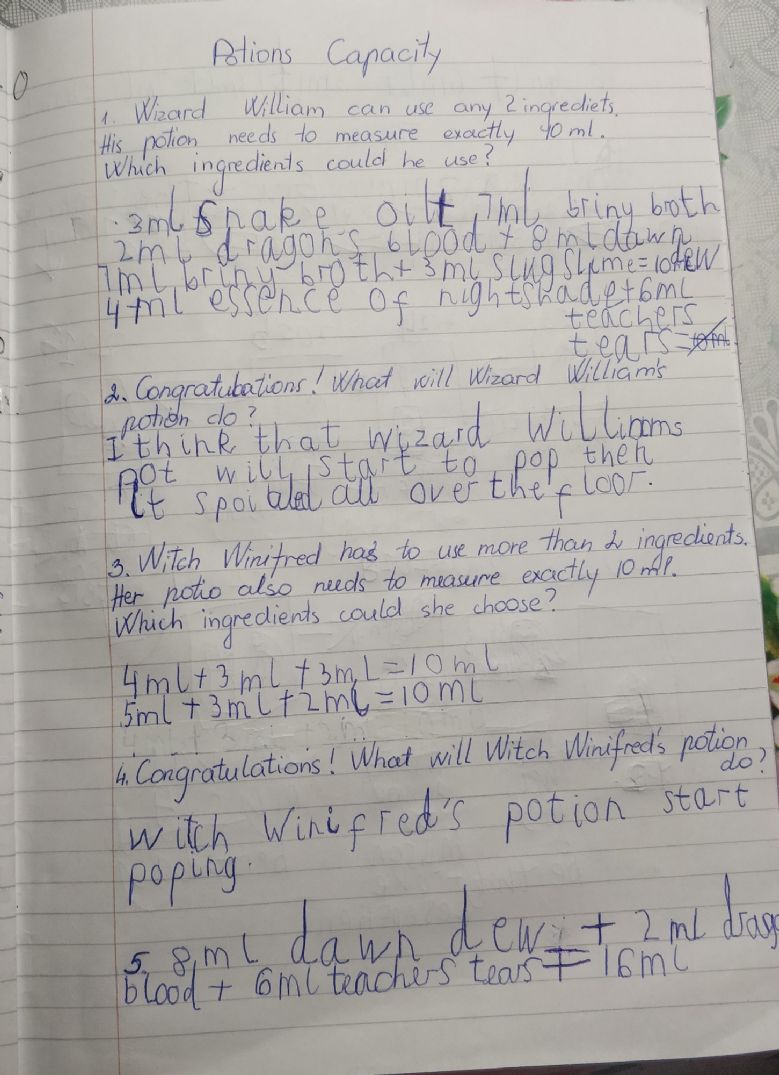 Potions Capacity
1. Wizard William can use any 2 ingrediets.
His potion needs to measure exactly 10 ml.
Which ingredients could he use?
3ml Snake oil + 7ml briny broth
2ml dragon's blood + 8ml dawn
7ml briny broth + 3ml Slug Slime = 10 dew
4ml essence of nightshade + 6ml
teachers
tears = 10ml
2. Congratubations! What will Wizard William's
potion do?
I think that wizard Williams
Pot will start to pop then
it spoiled all over the floor.
3. Witch Winifred has to use more than 2 ingredients.
Her potio also needs to measure exactly 10 ml.
Which ingredients could she choose?
4ml + 3ml + 3ml = 10ml
5ml + 3ml + 2ml = 10ml
4. Congratulations! What will Witch Winifred's potion
do?
witch Winifred's potion start
poping.
5. 8ml dawn dew + 2ml drag
blood + 6ml teachers tears = 16ml